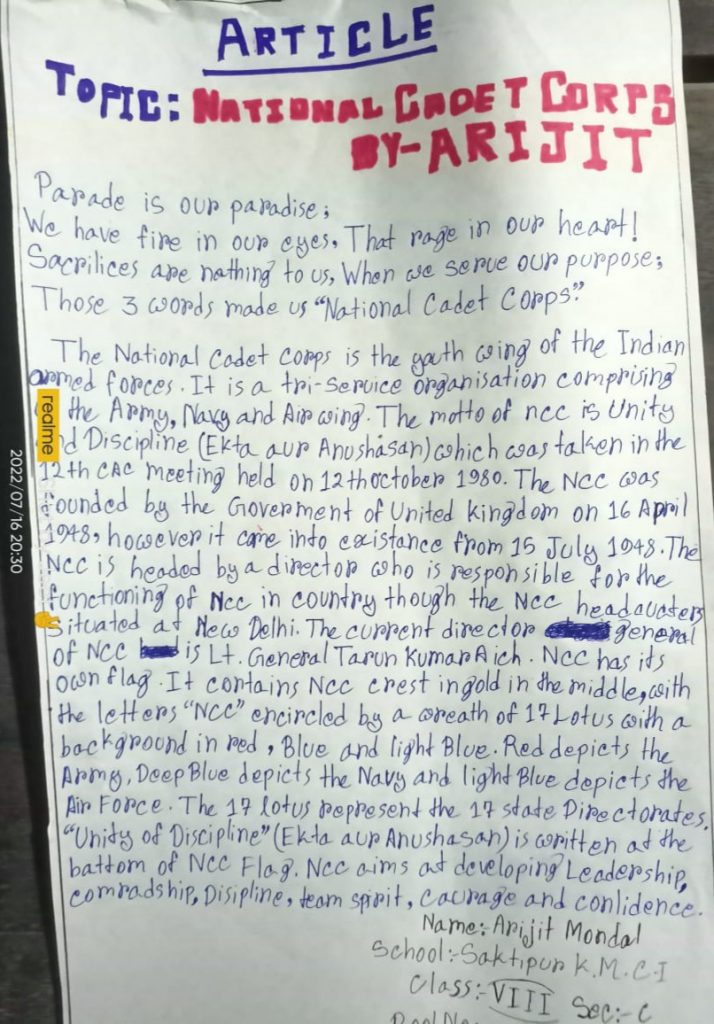 ARTICLE
TOPIC: NATIONAL CADET CORPS
BY-ARIJIT
Parade is our paradise;
We have fire in our eyes, That rage in our heart!
Sacrilices are nothing to us, When we serve our purpose;
Those 3 words made us "National Cadet Corps"
The National Cadet Corps is the youth wing of the Indian
armed forces. It is a tri-service organisation comprising
the Army, Navy and Air wing. The motto of ncc is Unity
and Discipline (Ekta aur Anushasan) which was taken in the
12th CAC meeting held on 12th october 1980. The NCC was
founded by the Goverment of United kingdom on 16 April
1948, however it came into existance from 15 July 1948. The
NCC is headed by a director who is responsible for the
functioning of NCC in country though the NCC headquters
Situated at New Delhi. The current director general
of NCC is Lt. General Tarun Kumar Aich. NCC has its
own flag. It contains NCC crest in gold in the middle, with
the letters "NCC" encircled by a wreath of 17 Lotus with a
background in red, Blue and light Blue. Red depicts the
Army, Deep Blue depicts the Navy and light Blue depicts the
Air Force. The 17 lotus represent the 17 state Directorates.
"Unity of Discipline" (Ekta aur Anushasan) is written at the
bottom of NCC Flag. NCC aims at developing Leadership,
comradship, Disipline, team spirit, Courage and conlidence.
Name:- Arijit Mondal
School:- Saktipur K.M.C.I
Class:- VIII Sec:- C
realme
2022/07/16 20:30